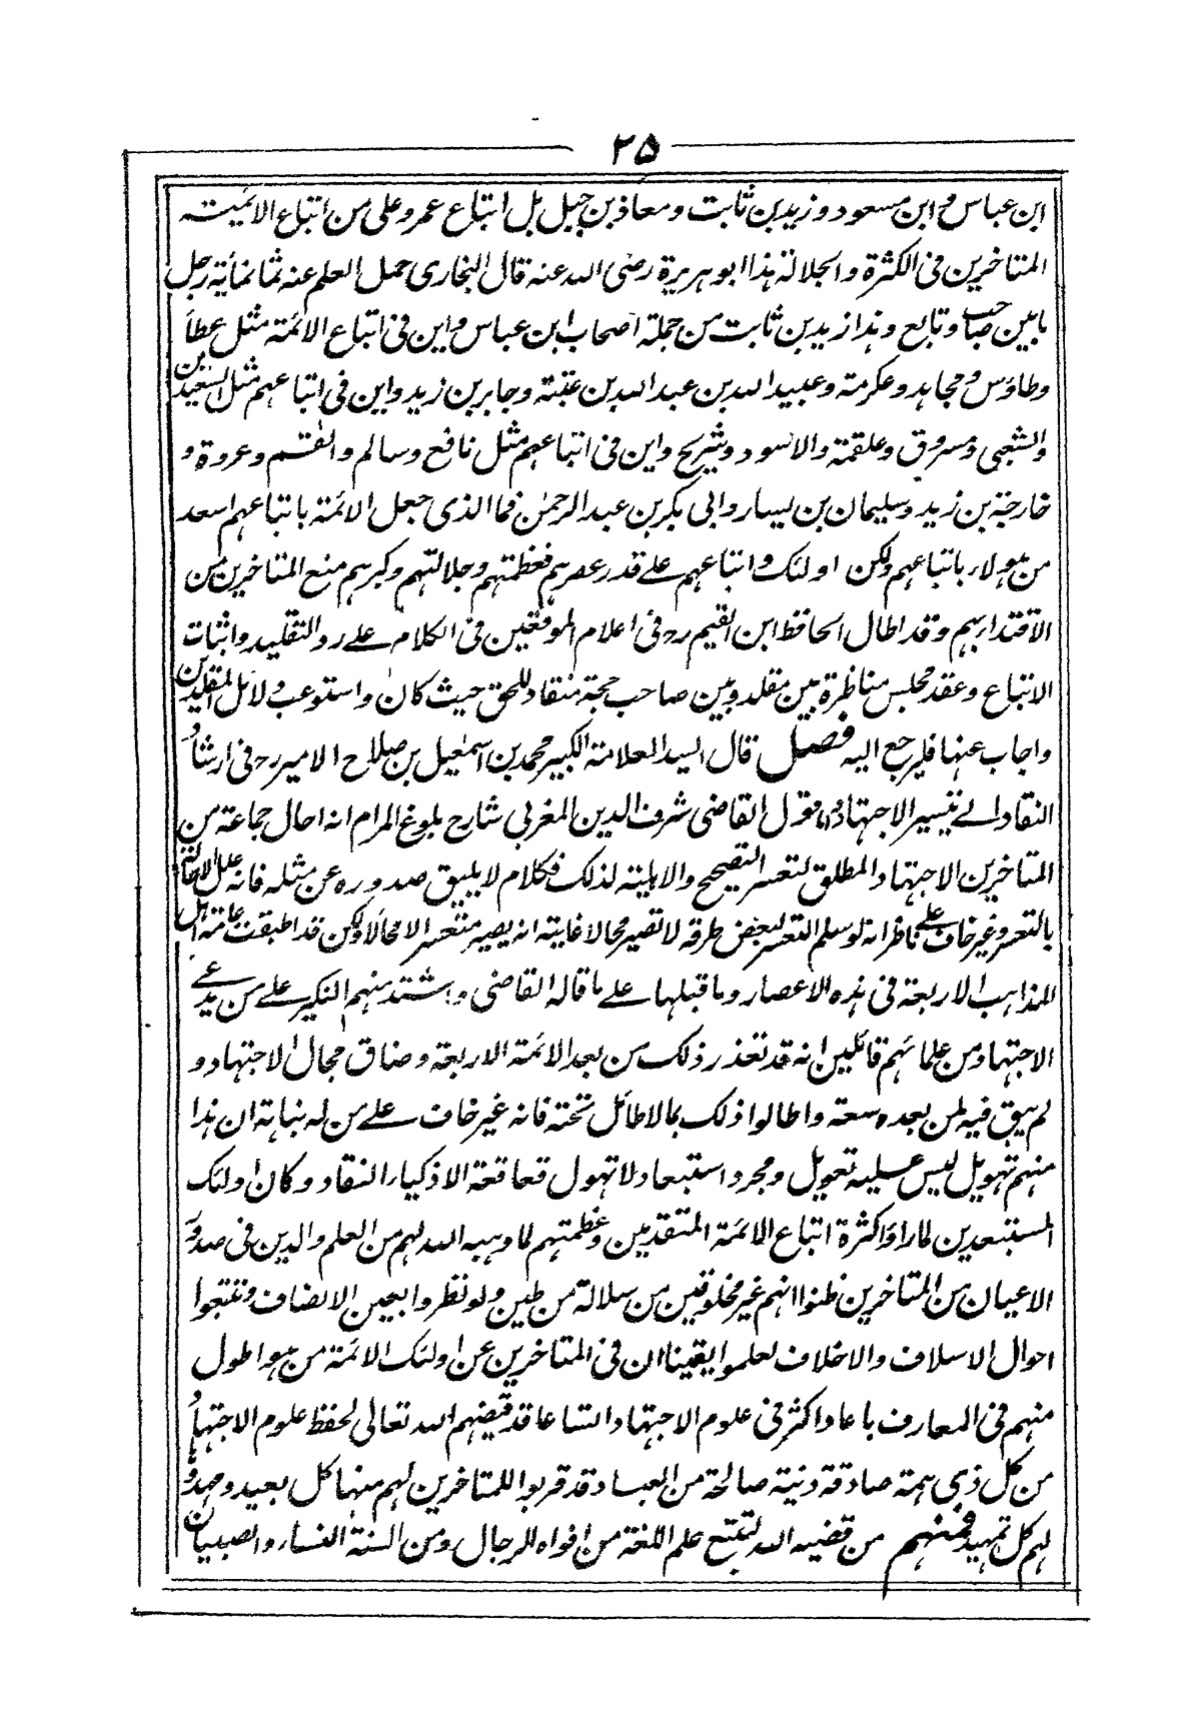 ٢٥
ابن عباس و ابن مسعود و زيد بن ثابت و معاذ بن جبل بل اتباع عمر و على من اتباع الائمة
المتاخرين فى الكثرة و الجلالة هذا ابو هريرة رضى الله عنه قال البخارى حمل العلم عنه ثمانمائة رجل
ما بين صاحب و تابع و هذا زيد بن ثابت من جملة اصحاب ابن عباس و اين فى اتباع الائمة مثل عطاء
و طاؤس و مجاهد و عكرمة و عبيد الله بن عبد الله بن عتبة و جابر بن زيد و اين فى اتباعهم مثل السعيدين
و الشعبى و مسروق و علقمة و الاسود و شريح و اين فى اتباعهم مثل نافع و سالم و القسم و عروة و
خارجة بن زيد و سليمان بن يسار و ابى بكر بن عبد الرحمن فما الذى جعل الائمة باتباعهم اسعد
من هولاء باتباعهم ولكن اولئك و اتباعهم على قدر عصرهم فعظمتهم و جلالتهم و كبرهم منع المتاخرين من
الاقتداء بهم و قد اطال الحافظ ابن القيم رح فى اعلام الموقعين فى الكلام على رد التقليد و اثبات
الاتباع و عقد مجلس مناظرة بين مقلد و بين صاحب حجة منقاد للحق حيث كان و استوعب دلائل المقلدين
و اجاب عنها فليرجع اليه فصل قال السيد العلامة الكبير محمد بن اسمعيل بن صلاح الامير رح فى ارشاد
النقاد الى تيسير الاجتهاد اما قول القاضى شرف الدين المغربى شارح بلوغ المرام انه احال جماعة من
المتاخرين الاجتهاد المطلق لتعسر التصحيح و الاهلية لذلك فكلام لا يليق صدوره عن مثله فانه علل الاحالة
بالتعسر و غير خاف على ناظر انه لو سلم التعسر لبعض طرقه لا تصير محالا غايته انه يصير متعسرا لا محالا ولكن قد اطبقت عامة اهل
المذاهب الاربعة فى هذه الاعصار و ما قبلها على ما قاله القاضى و اشتد منهم النكير على من يدعى
الاجتهاد من علمائهم قائلين انه قد تعذر ذلك من بعد الائمة الاربعة و ضاق مجال الاجتهاد و
لم يبق فيه لمن بعده سعة و اطالوا ذلك بما لا طائل تحته فانه غير خاف على من له نباهة ان هذا
منهم تهويل ليس عليه تعويل و مجرد استبعاد لا تهول قعاقعة الاذكياء النقاد و كان اولئك
المستبعدين لما راؤا كثرة اتباع الائمة المتقدمين و عظمتهم لما وهبه الله لهم من العلم و الدين فى صدور
الاعيان من المتاخرين ظنوا انهم غير مخلوقين من سلالة من طين و لو نظروا بعين الانصاف و تتبعوا
احوال الاسلاف و الاخلاف لعلموا يقينا ان فى المتاخرين عن اولئك الائمة من هو اطول
منهم فى المعارف باعا و اكثر فى علوم الاجتهاد اتساعا قد قيضهم الله تعالى لحفظ علوم الاجتهاد
من كل ذى همة صادقة و نية صالحة من العباد قد قربوا للمتاخرين لهم منها كل بعيد و مهدوا
لهم كل تمهيد فمنهم من قضيه الله لتتبع علم اللغة من افواه الرجال و من السنة النساء و الصبيان